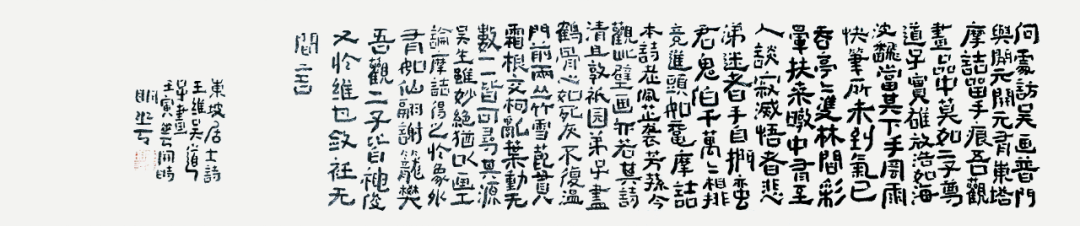 何處訪吳画普門
與開元開元有東塔
摩詰留手痕吾觀
畫品中莫如二子尊
道子實雄放浩如海
波飜當其下手風雨
快筆所未到氣已
吞亭亭雙林間彩
暈扶桑暾中有至
人談寂滅悟者悲
涕迷者手自捫蠻
君鬼伯千萬萬相排
競進頭如黿摩詰
本詩老佩芷襲芳蓀今
觀此壁画亦若其詩
清且敦祇园弟子盡
鶴骨心如死灰不復溫
門前兩丛竹雪節貫
霜根交柯亂葉動无
數一一皆可尋其源
吳生雖妙絕猶以畫工
論摩詰得之於象外
有如仙翮謝籠樊
吾觀二子皆神俊
又於維也斂衽无
間言
東坡居士詩
王維吳道
子畫
壬寅